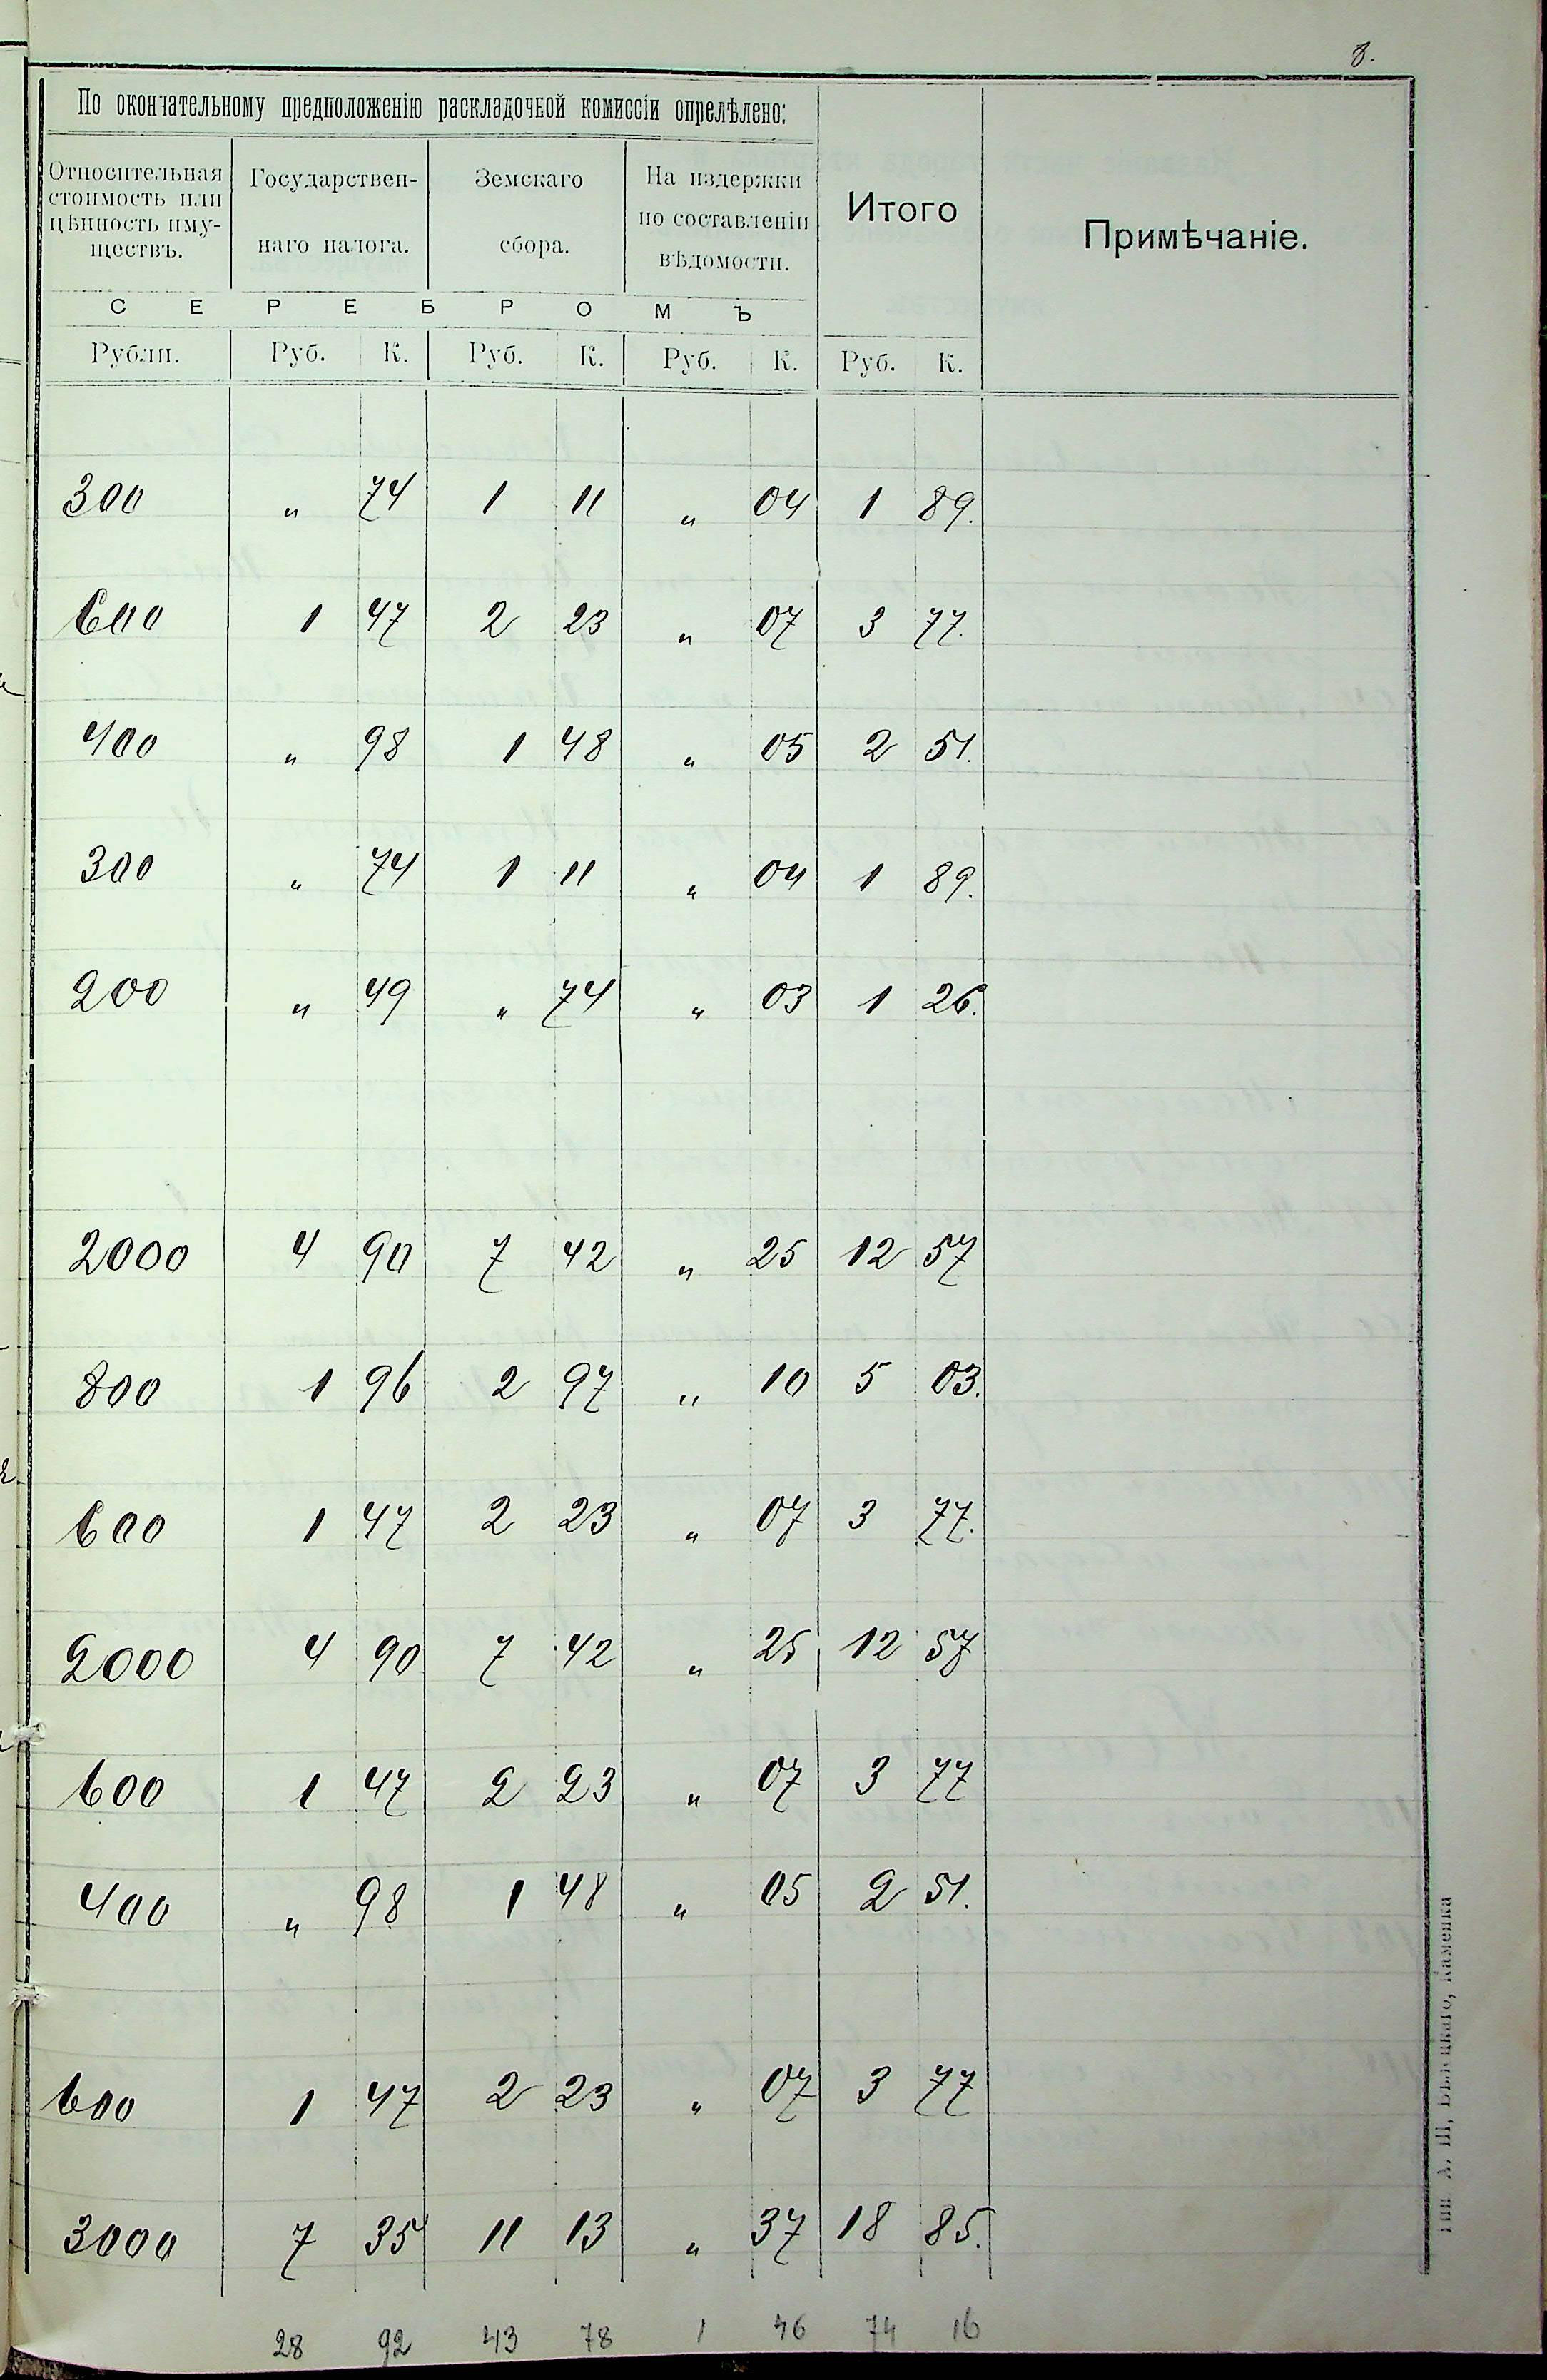 8.
По окончательному предположенію раскладочной комиссіи опрелѣлено:
Относительная стоимость или цѣнность иму-ществъ.
Государствен-наго налога.
Земскаго сбора.
На издержки по составленіи вѣдомости.
Итого
Примѣчаніе.
С Е Р Е Б Р О М Ъ
Рубли. Руб. К. Руб. К. Руб. К. Руб. К.
300 " 74 1 11 " 04 1 89.
600 1 47 2 23 " 07 3 77.
400 " 98 1 48 " 05 2 51.
300 " 74 1 11 " 04 1 89.
200 " 49 " 74 " 03 1 26.
2000 4 90 7 42 " 25 12 57
800 1 96 2 97 " 10 5 03.
600 1 47 2 23 " 07 3 77.
2000 4 90 7 42 " 25 12 57
600 1 47 2 23 " 07 3 77
400 " 98 1 48 " 05 2 51.
600 1 47 2 23 " 07 3 77
3000 7 35 11 13 " 37 18 85.
28 92 43 78 1 46 74 16
Тип А. Ш. Бѣлецкаго, Каменка